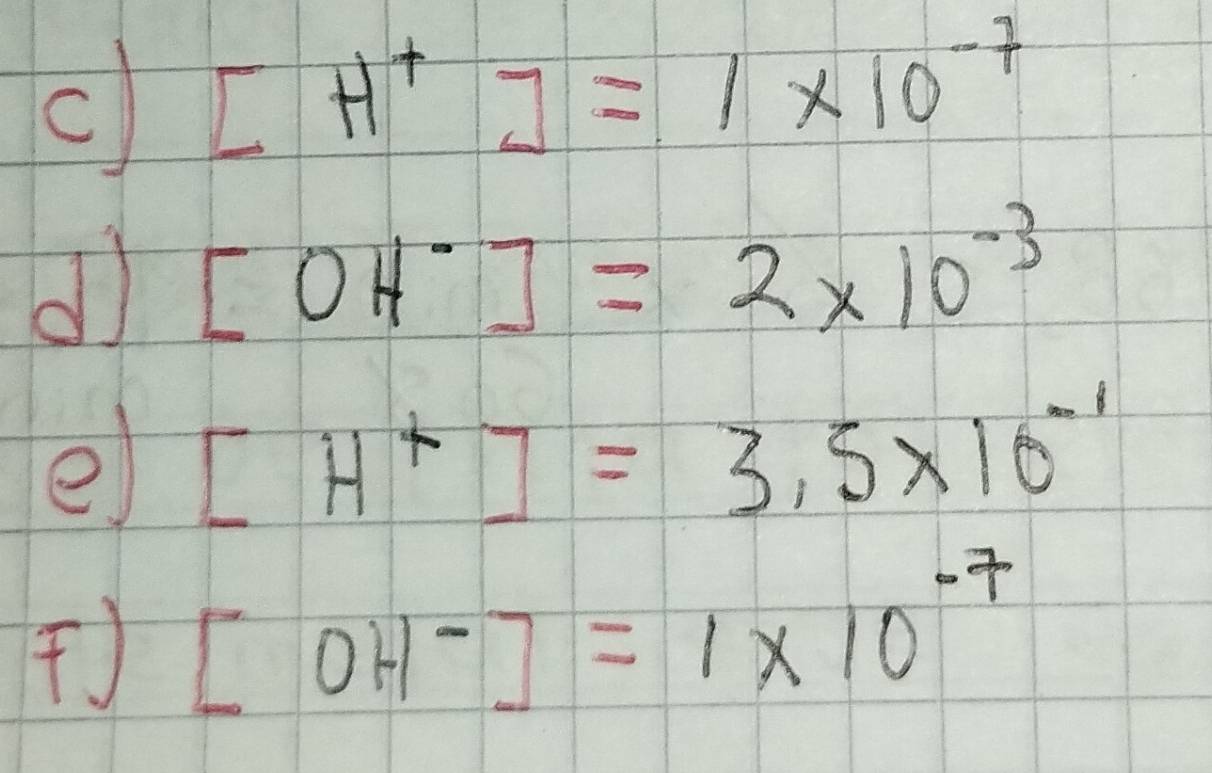 c) [ H⁺ ] = 1 x 10⁻⁷
d) [ OH⁻ ] = 2 x 10⁻³
e) [ H⁺ ] = 3,5 x 10⁻¹
f) [ OH⁻ ] = 1 x 10⁻⁷